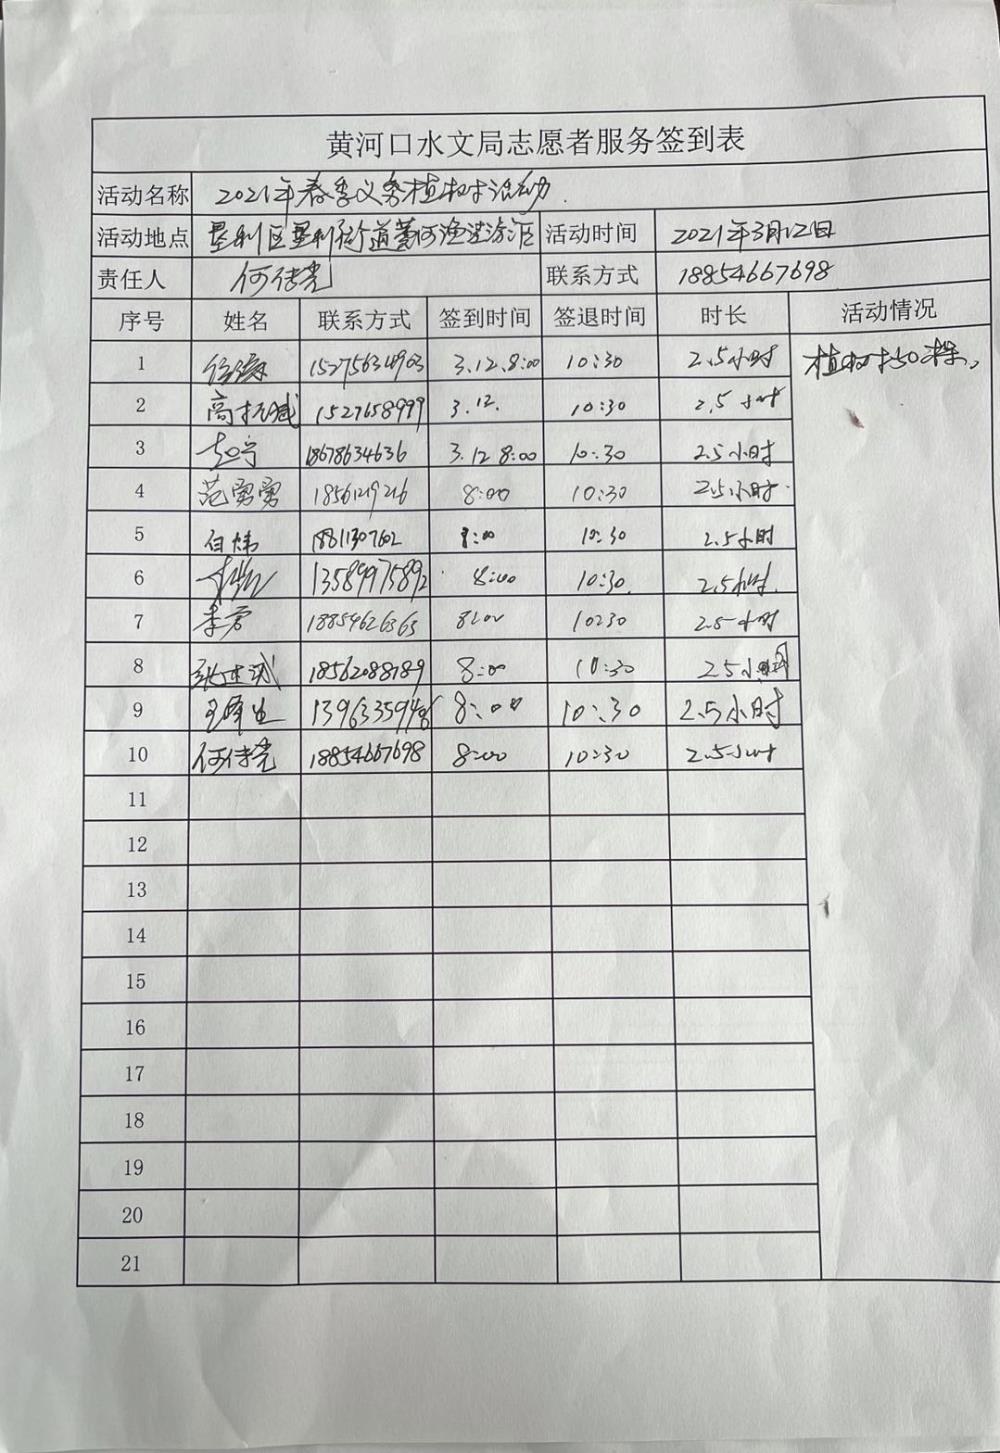 黄河口水文局志愿者服务签到表
活动名称 2021年春季义务植树活动
活动地点 垦利区垦利街道 活动时间 2021年3月12日
责任人 何传光 联系方式 18854667698
序号 姓名 联系方式 签到时间 签退时间 时长 活动情况
1 15275634903 3.12.8:00 10:30 2.5小时 植树50棵。
2 1527658999 3.12. 10:30 2.5小时
3 赵宁 18678634636 3.12 8:00 10:30 2.5小时
4 范勇勇 1856129216 8:00 10:30 2.5小时
5 白炜 18811307602 8:00 10:30 2.5小时
6 13589975892 8:00 10:30 2.5小时
7 李芳 18854626363 8:00 10:30 2.5小时
8 18562088789 8:00 10:30 2.5小时
9 8:00 10:30 2.5小时
10 何传光 18854667698 8:00 10:30 2.5小时
11
12
13
14
15
16
17
18
19
20
21